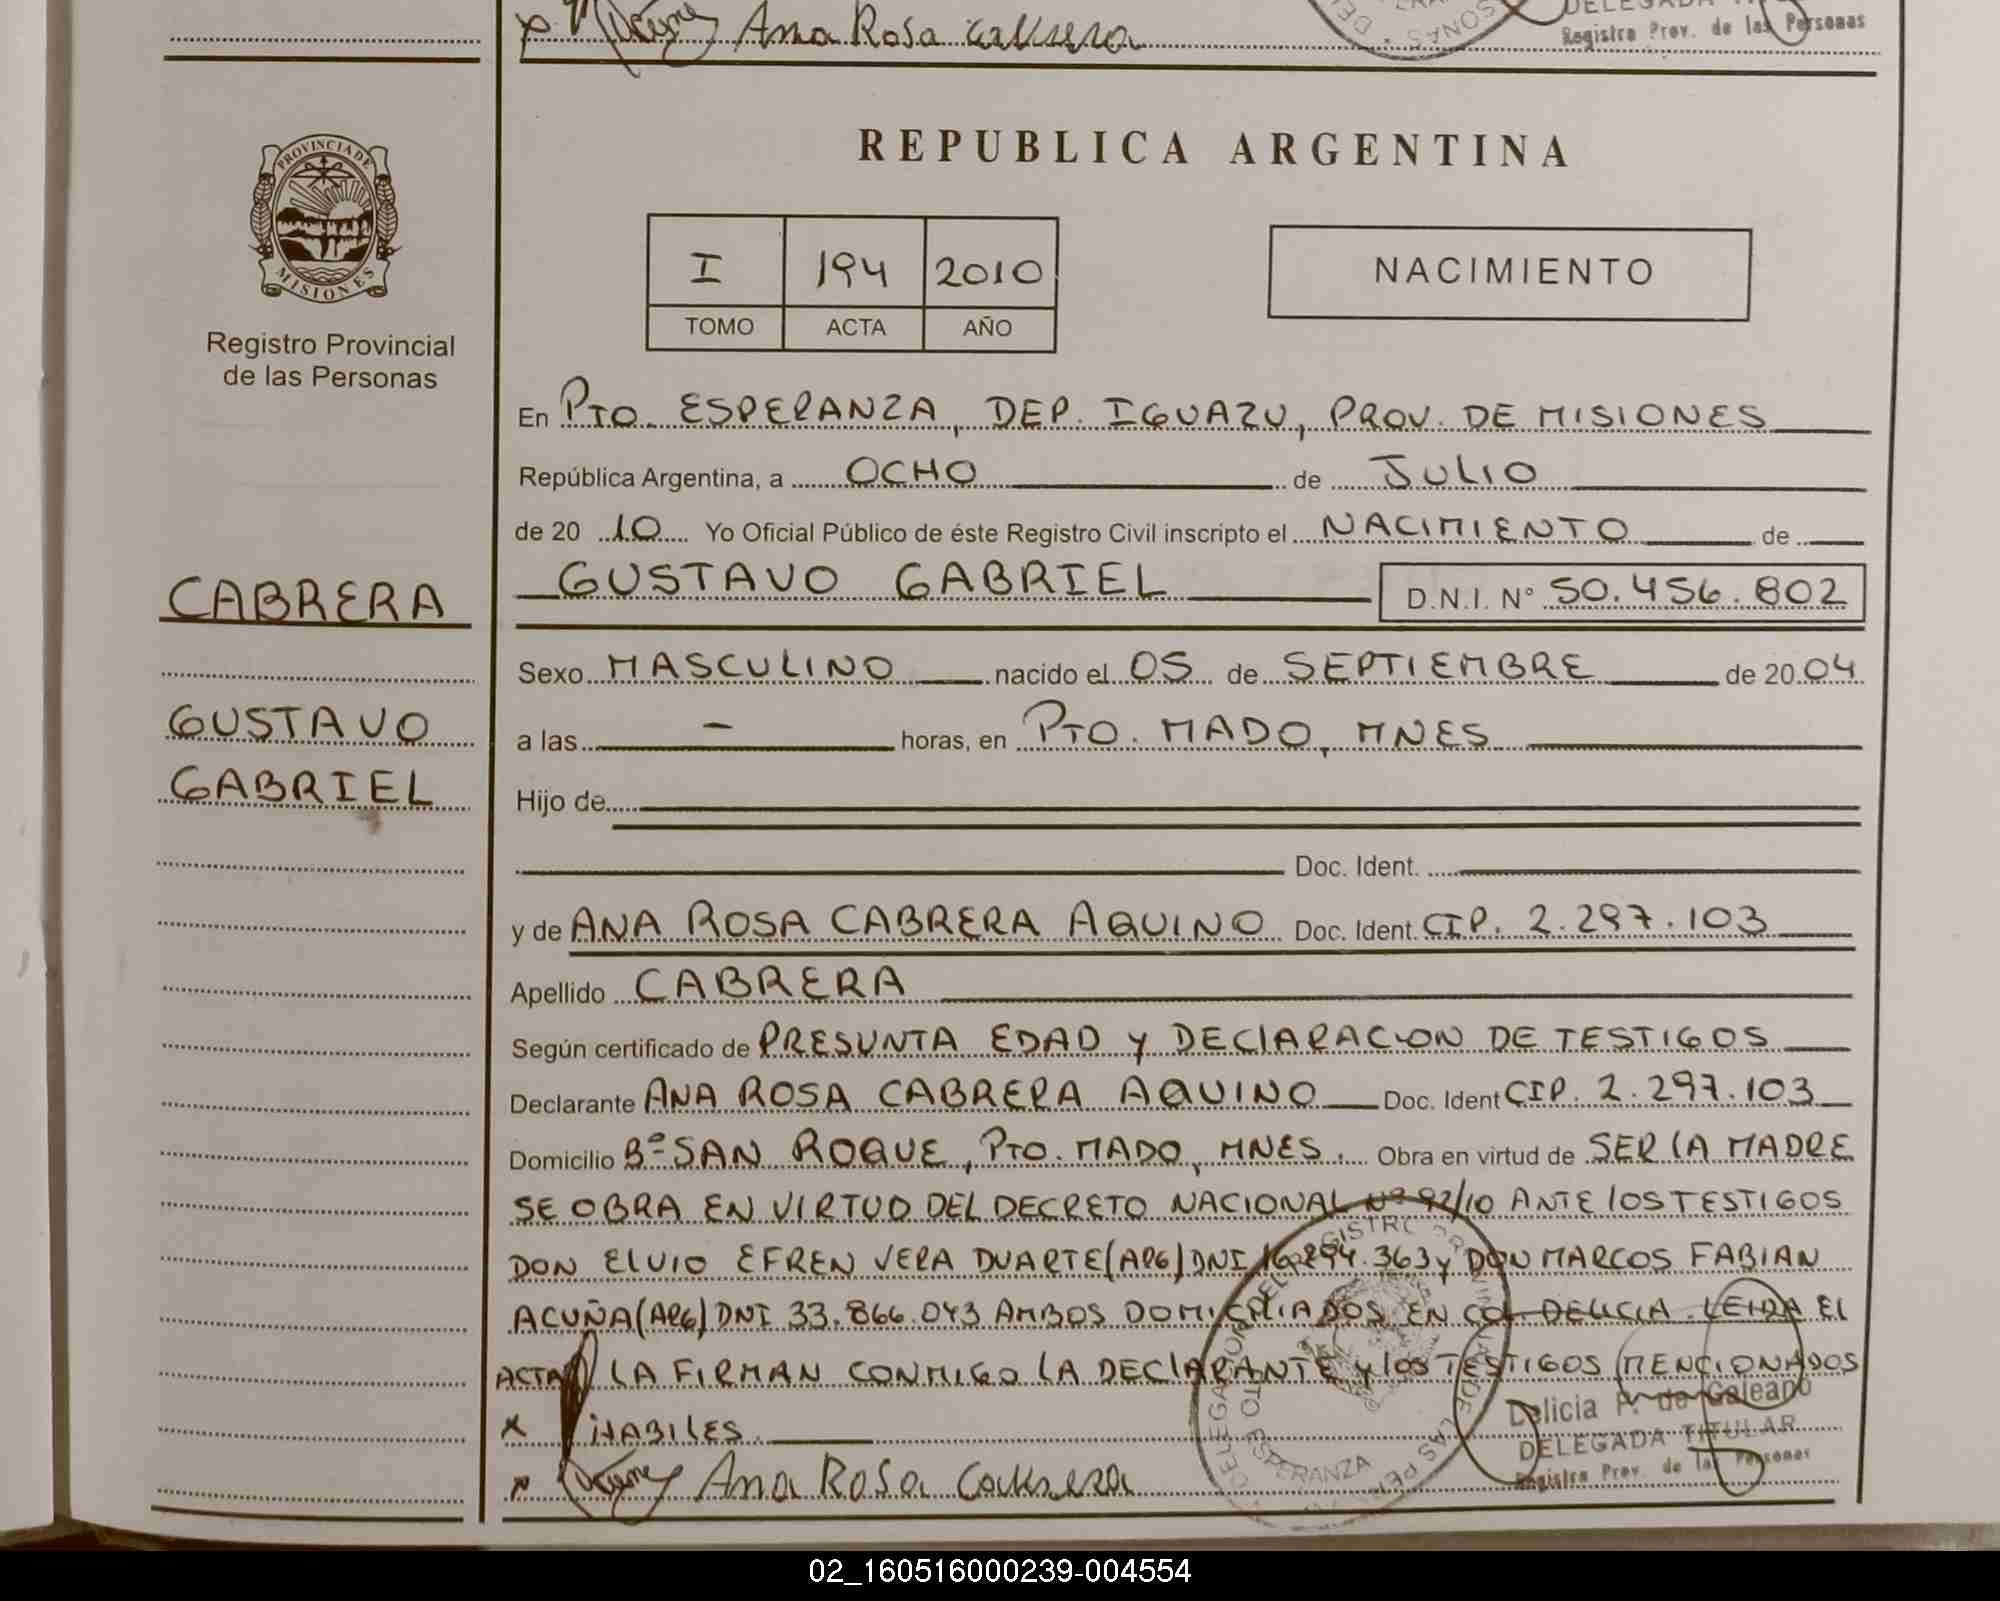 Ana Rosa Cabrera
Registro Prov. de las Personas
PROVINCIA DE
MISIONES
Registro Provincial
de las Personas
CABRERA
GUSTAVO
GABRIEL
REPUBLICA ARGENTINA
I 194 2010
TOMO ACTA AÑO
NACIMIENTO
En PTO. ESPERANZA, DEP. IGUAZU, PROV. DE MISIONES
República Argentina, a OCHO de JULIO
de 20 10 Yo Oficial Público de éste Registro Civil inscripto el NACIMIENTO de
GUSTAVO GABRIEL D.N.I. N° 50.456.802
Sexo MASCULINO nacido el 05 de SEPTIEMBRE de 20 04
a las - horas, en PTO. MADO, MNES
Hijo de
Doc. Ident.
y de ANA ROSA CABRERA AQUINO Doc. Ident. CIP. 2.297.103
Apellido CABRERA
Según certificado de PRESUNTA EDAD y DEClARACION DE TESTIGOS
Declarante ANA ROSA CABRERA AQUINO Doc. Ident CIP. 2.297.103
Domicilio Bº SAN ROQUE, PTO. MADO, MNES. Obra en virtud de SER lA MADRE
SE OBRA EN VIRTUD DEL DECRETO NACIONAL Nº 92/10 ANTE lOS TESTIGOS
DON ElVIO EFREN VERA DUARTE (ARG) DNI 16.294.363 y DON MARCOS FABIAN
ACUÑA (ARG) DNI 33.866.043 AMBOS DOMICILIADOS EN COL DELICIA. LEIDA El
ACTA LA FIRMAN CONMIGO lA DEClARANTE y lOS TESTIGOS MENCIONADOS
x HABILES.
x Ana Rosa Cabrera
Delicia P. de Galeano
DELEGADA TITULAR
Registro Prov. de las Personas
02_160516000239-004554